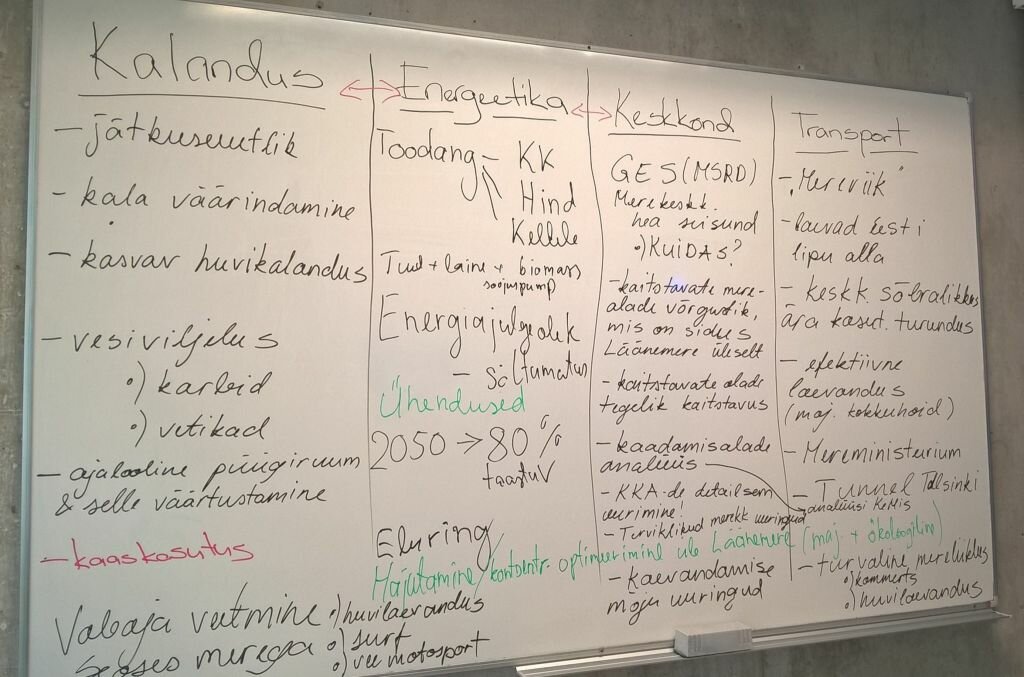 Kalandus
- jätkusuutlik
- kala väärindamine
- kasvav huvikalandus
- vesiviljelus
•) karbid
•) vetikad
- ajalooline püügiruum
& selle väärtustamine
- kaaskasutus
Vabaja veetmine
seoses merega
•) huvilaevandus
•) surf
•) vee motosport
Energeetika
Toodang - KK
Hind
Kellele
Tuul + laine + biomass
soojuspump
Energiajulgeolek
- sõltumatus
Ühendused
2050 → 80%
taastuv
Elering
Hajutamine/kontsentr. optimeerimine üle Läänemere (maj. + ökoloogiline)
Keskkond
GES (MSRD)
Merekeskk.
hea seisund
•) KUIDAS?
- kaitstavate mere-
alade võrgustik,
mis on sidus
Läänemere üleselt
- kaitstavate alade
tegelik kaitstavus
- kaadamisalade
analüüs
- KKA-de detailsem
uurimine!
- Terviklikud merekk uuringud
- kaevandamise
mõju uuringud
Transport
- "Mereriik"
- laevad Eesti
lipu alla
- keskk. sõbralikkus
ära kasut. turundus
- efektiivne
laevandus
(maj. kokkuhoid)
- Mereministeerium
- Tunnel Talsinki
analüüsi KeMis
- turvaline mereliiklus
•) kommerts
•) huvilaevandus